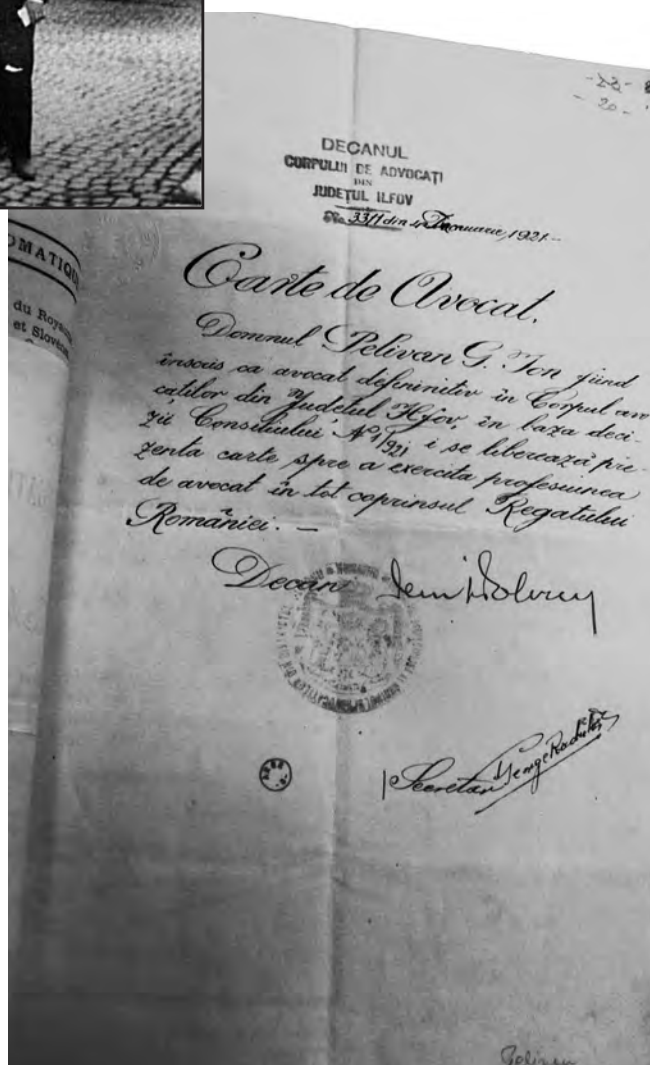 DECANUL
CORPULUI DE ADVOCAȚI
DIN
JUDEȚUL ILFOV
No. 3311 din Ianuarie, 1921 –
OMATIQU
du Royau
et Slovèn
Carte de Avocat.
Domnul Pelivan G. Ion fiind
înscris ca avocat definitiv în Corpul avo
caților din Județul Ilfov, în baza deci-
zii Consiliului No 1/921 i se liberează pre-
zenta carte spre a exercita profesiunea
de avocat în tot coprinsul Regatului
României. –
Decan
Secretar
Pelivan